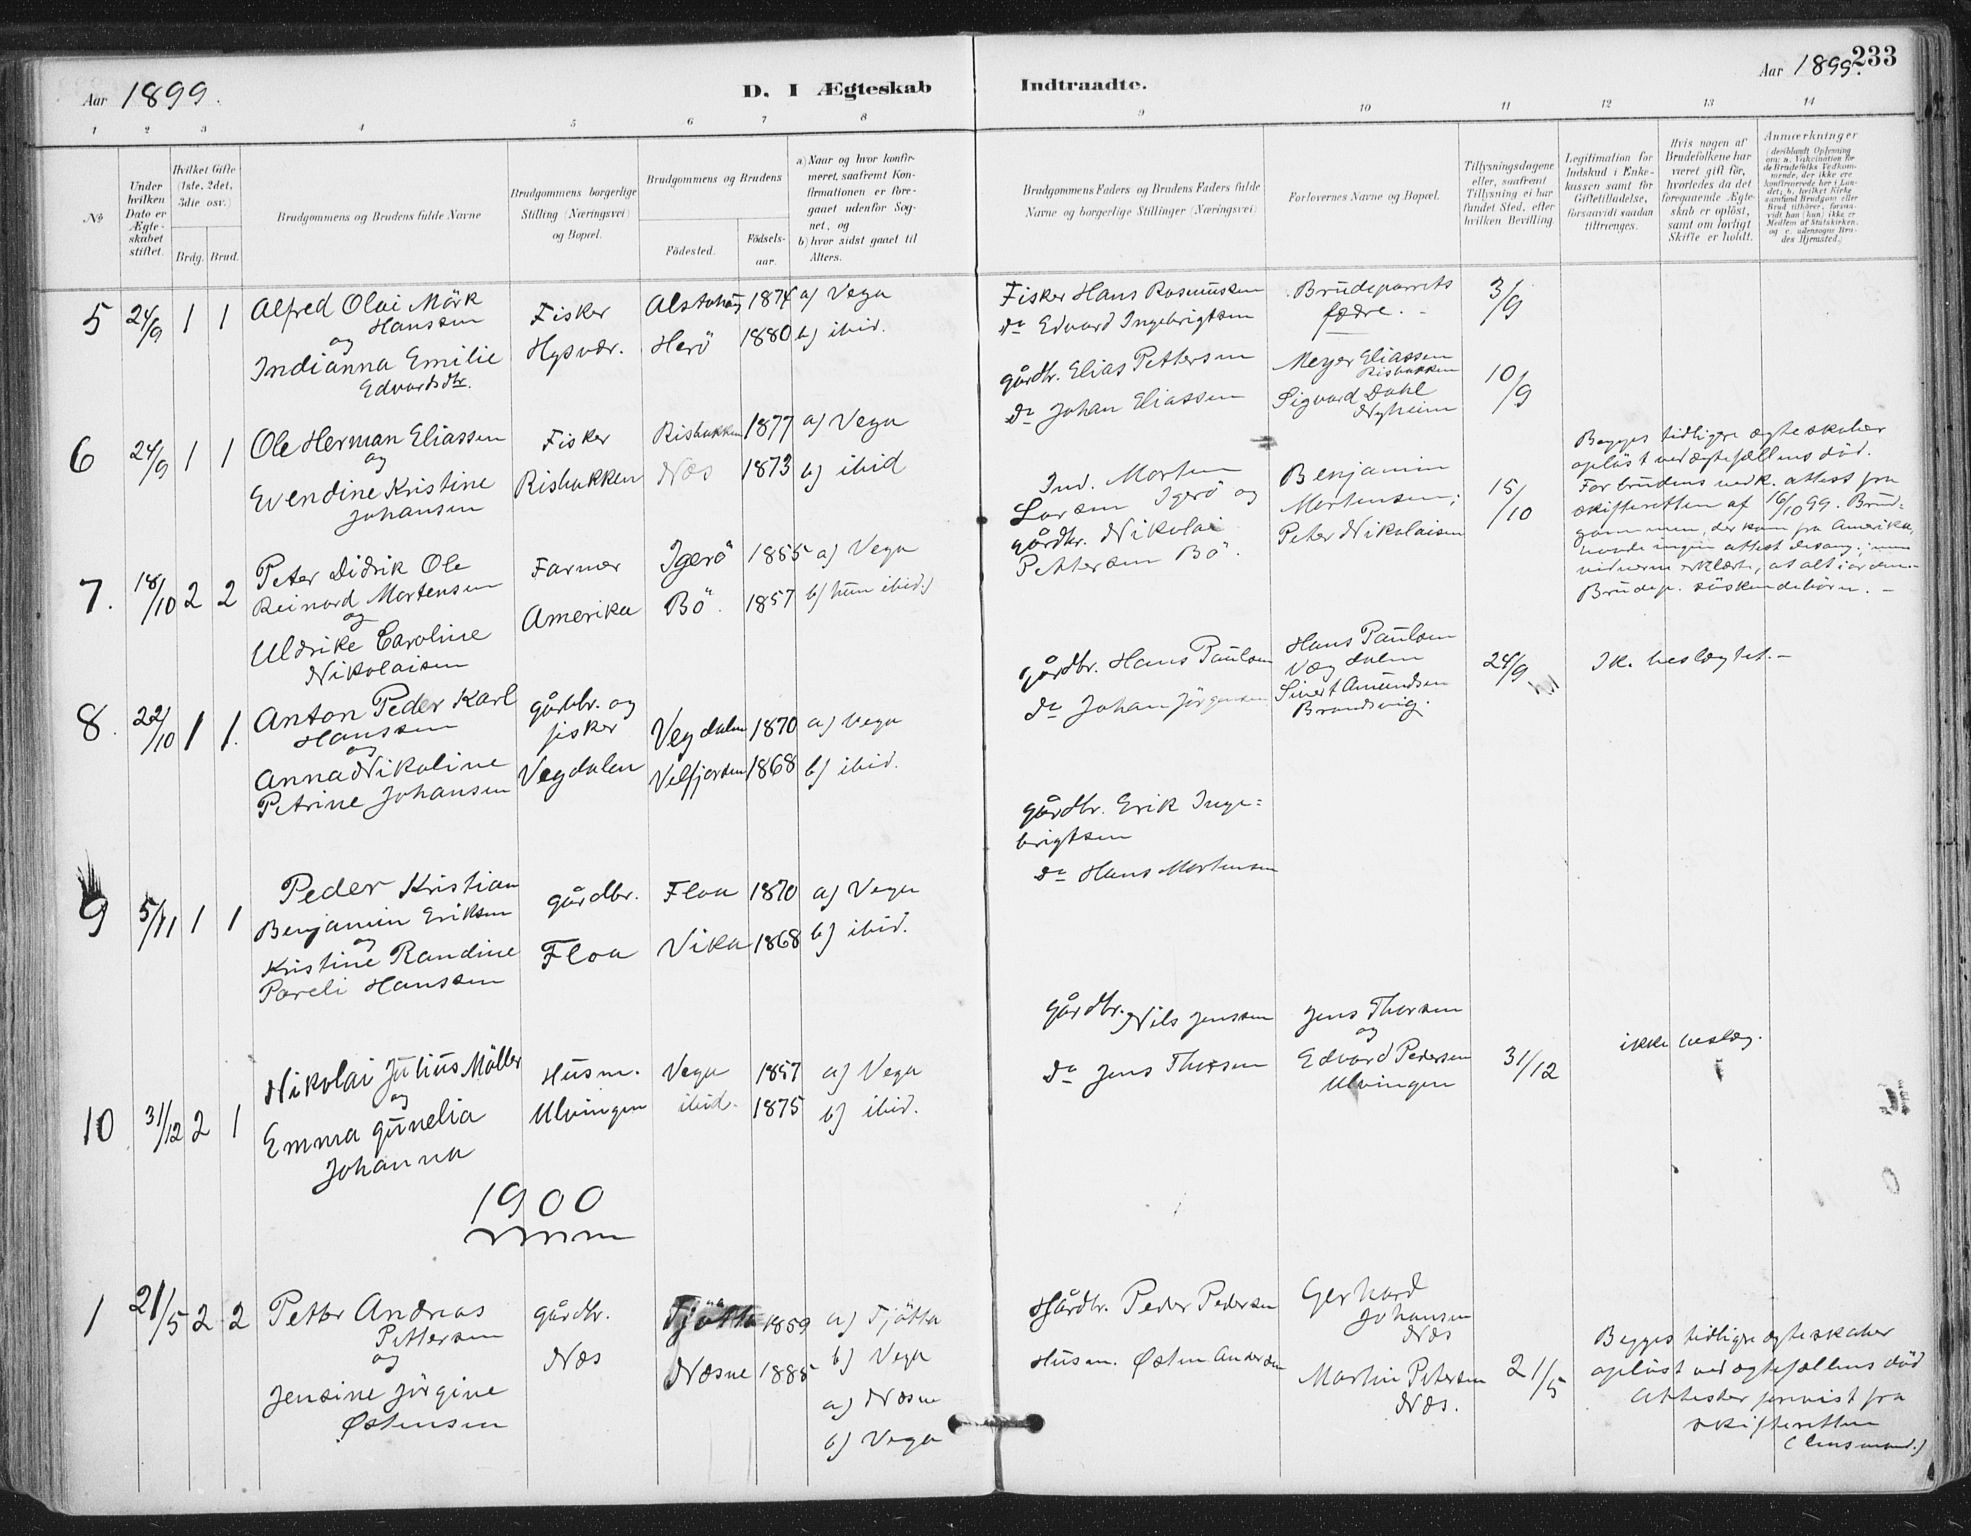 Aar 1899.
D. I Ægteskab Indtraadte.
Aar 1899. 233
1 2 3 4 5 6 7 8 9 10 11 12 13 14
No
Under hvilken Dato er Ægteskabet stiftet.
Hvilket Gifte (1ste, 2det, 3die osv.)
Brdg. Brud.
Brudgommens og Brudens fulde Navne
Brudgommens borgerlige Stilling (Næringsvei) og Bopæl.
Brudgommens og Brudens
Födested. Födselsaar.
a) Naar og hvor konfirmeret, saafremt Konfirmationen er foregaaet udenfor Sognet, og
b) hvor sidst gaaet til Alters.
Brudgommens Faders og Brudens Faders fulde Navne og borgerlige Stillinger (Næringsvei)
Forlovernes Navne og Bopæl.
Tillysningsdagene eller, saafremt Tillysning ei har fundet Sted, efter hvilken Bevilling
Legitimation for Indskud i Enkekassen samt for Giftetilladelse, forsaavidt saadan tiltrænges.
Hvis nogen af Brudefolkene har været gift för, hvorledes da det foregaaende Ægteskab er oplöst, samt om lovligt Skifte er holdt.
Anmærkninger
(deriblandt Oplysning om: a. Vakcination for de Brudefolks Vedkommende, der ikke ere konfirmerede her i Landet; b. hvilket Kirkesamfund Brudgom eller Brud tilhörer, forsaavidt han (hun) ikke er Medlem af Statskirken, og c. udensogns Brudes Hjemsted.)
5 24/9 1 1
Alfred Olai Mörk
Hanssen
og
Indianna Emilie
Edvardsdtr.
Fisker
Hysvær.
Alstahög 1874 a) Vega
Herö 1880 b) ibid.
Fisker Hans Rasmussen
Do Edvard Ingebrigtsen
Brudeparrets
fædre.
3/9
6 24/9 1 1
Ole Herman Eliassen
og
Evendine Kristine
Johansen
Fisker
Risbakken
Risbakken 1877 a) Vega
Næs 1873 b) ibid
gårdbr. Elias Pettersen
Do Johan Eliassen
Meyer Eliassen
Risbakken
Sigvard Dahl
Nyheim
10/9
7. 18/10 2 2
Peter Didrik Ole
Reinard Mortensen
og
Uldrike Caroline
Nikolaisen
Farmer
Amerika
Igerö 1855 a) Vega
Bö. 1857 b) hun ibid.)
Ind. Morten
Larsen Igerö og
gårdbr. Nikolai
Pettersen Bö.
Benjamin
Mortensen;
Peter Nikolaisen
15/10
Begges tidligere ægteskaber
opløst ved ægtefællens død.
For brudens vedk. attest fra
skifteretten af 16/10 99. Brudgommen, der kom fra Amerika,
havde ingen attest
vidnerne erklærte, at alt i orden
Brudep. söskendebörn. -
8. 22/10 1 1.
Anton Peder Karl
Hanssen
og
Anna Nikoline
Petrine Johansen
gårdbr. og
fisker
Vegdalen
Vegdalen 1870 a) Vega
Velfjorden 1868 b) ibid.
gårdbr. Hans Paulsen
Do Johan Jörgensen
Hans Paulsen
Vægdalen
Sivert Amundsen
Brandsvig.
24/9
Ik. beslægtet. -
9 5/11 1 1
Peder Kristian
Benjamin Eriksen
og
Kristine Randine
Pareli Hanssen
gårdbr.
Floa
Floa 1870 a) Vega
Vika 1868 b) ibid.
gårdbr. Erik Inge=
brigtsen
Do Hans Mortensen
10 31/12 2 1
Nikolai Julius Möller
og
Emma Gunelia
Johanna
Husm.
Ulvingen
Vega 1857 a) Vega
ibid. 1875 b) ibid.
gårdbr. Nils Jenssen
Do Jens Thorsen
Jens Thorsen
og
Edvard Pedersen
Ulvingen
31/12
ikke beslæg.
1900
1 21/5 2 2
Petter Andreas
Pettersen
og
Jensine Jörgine
Østensen
gårdbr.
Næs
Tjötta 1859 a) Tjötta
b) Vega
Næsne 1885 a) Næsne
b) Vega
Gårdbr. Peder Pedersen
Husm. Østen Andersen
Gerhard
Johansen
Næs
Martin Petersen
Næs.
21/5
Begges tidligere ægteskaber
opløst ved ægtefællens död
Attester forevist fra
skifteretten
(Lensmand.)